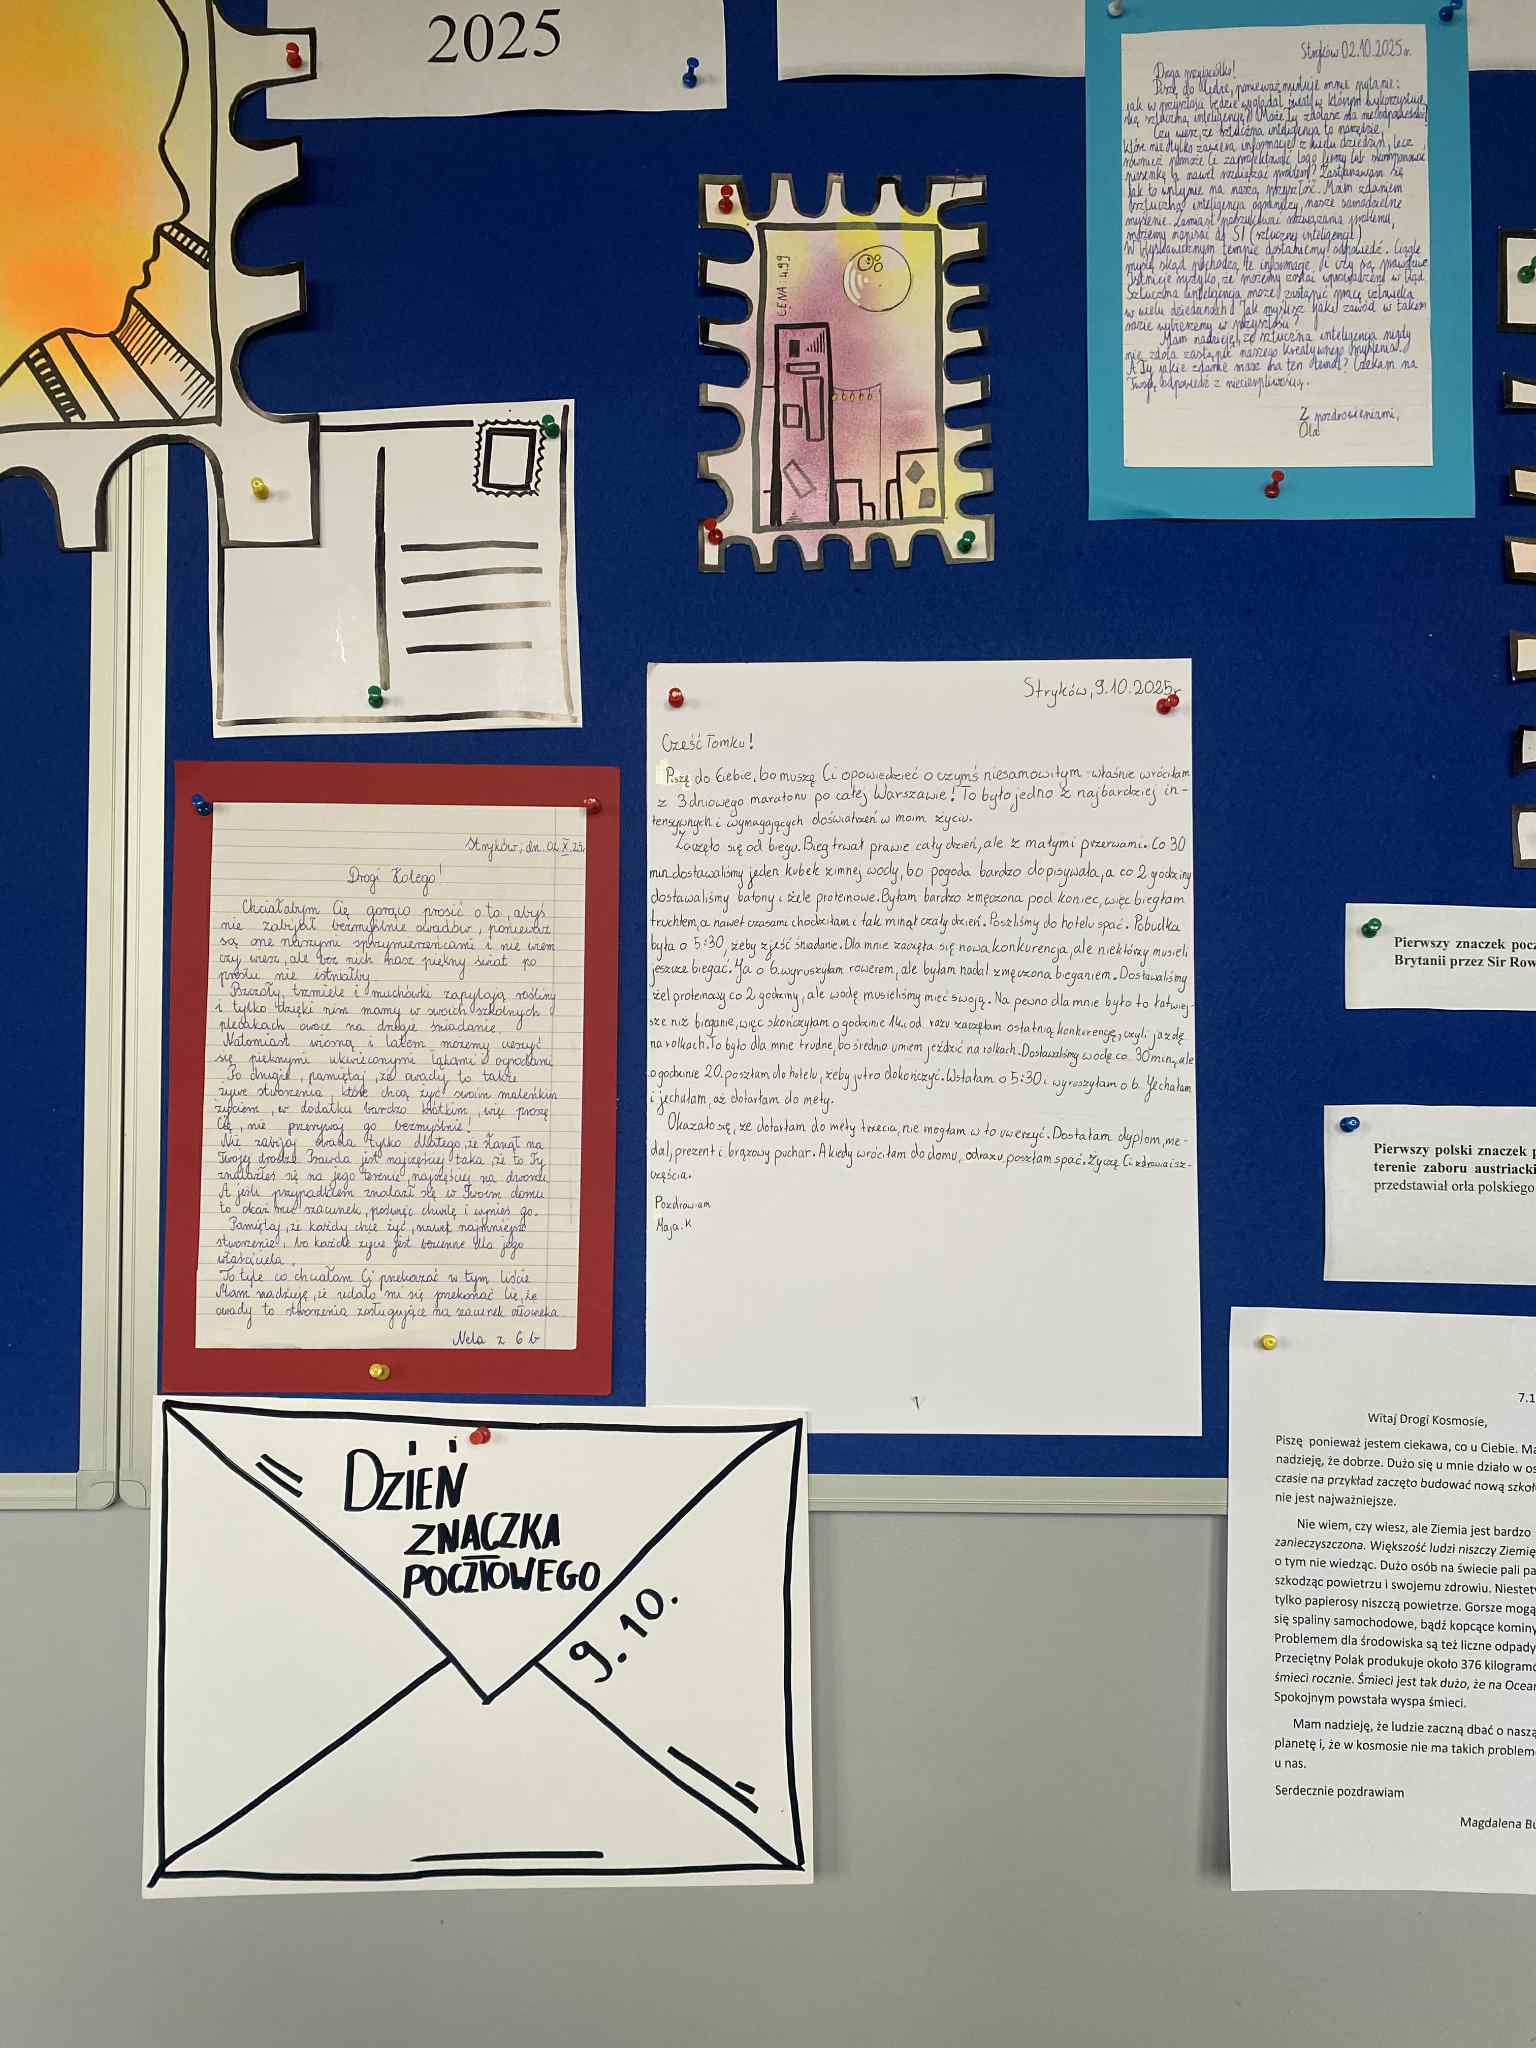 2025
CENA: 4.99
Stryków 02.10.2025r.
Droga przyjaciółko!
Piszę do Ciebie, ponieważ nurtuje mnie pytanie:
jak w przyszłości będzie wyglądał świat, w którym wykorzystuje
się sztuczną inteligencję? Może Ty zdołasz
Czy wiesz, że sztuczna inteligencja to narzędzie,
które nie tylko zawiera informacje z wielu dziedzin, lecz
również pomoże Ci zaprojektować logo firmy lub skomponować
piosenkę, a nawet rozwiązać problem? Zastanawiam się
jak to wpłynie na naszą przyszłość. Moim zdaniem
sztuczna inteligencja ograniczy nasze samodzielne
myślenie. Zamiast poszukiwać rozwiązania problemu,
możemy napisać do SI (sztucznej inteligencji)
W błyskawicznym tempie dostaniemy odpowiedź. Ciągle
myślę skąd pochodzą te informacje i czy są prawdziwe
Istnieje ryzyko, że możemy zostać wprowadzeni w błąd
Sztuczna inteligencja może zastąpić pracę człowieka
w wielu dziedzinach! Jak myślisz jaki zawód w takim
razie wybierzemy w przyszłości?
Mam nadzieję, że sztuczna inteligencja nigdy
nie zdoła zastąpić naszego kreatywnego myślenia.
A Ty jakie zdanie masz na ten temat? Czekam na
Twoją odpowiedź z niecierpliwością.
Z pozdrowieniami,
Ola
Stryków, 9.10.2025r
Cześć Tomku!
Piszę do Ciebie, bo muszę Ci opowiedzieć o czymś niesamowitym - właśnie wróciłam
z 3 dniowego maratonu po całej Warszawie! To było jedno z najbardziej in-
tensywnych i wymagających doświadzeń w moim życiu.
Zaczęło się od biegu. Bieg trwał prawie cały dzień, ale z małymi przerwami. Co 30
min. dostawaliśmy jeden kubek zimnej wody, bo pogoda bardzo dopisywała, a co 2 godziny
dostawaliśmy batony i żele proteinowe. Byłam bardzo zmęczona pod koniec, więc biegłam
truchtem, a nawet czasami chodziłam i tak minął cały dzień. Poszliśmy do hotelu spać. Pobudka
była o 5:30, żeby zjeść śniadanie. Dla mnie zaczęła się nowa konkurencja, ale niektórzy musieli
jeszcze biegać. Ja o 6. wyruszyłam rowerem, ale byłam nadal zmęczona bieganiem. Dostawaliśmy
żel proteinowy co 2 godziny, ale wodę musieliśmy mieć swoją. Na pewno dla mnie było to łatwiej-
sze niż bieganie, więc skończyłam o godzinie 14. i od razu zaczęłam ostatnią konkurencję, czyli jazdę
na rolkach. To było dla mnie trudne, bo średnio umiem jeździć na rolkach. Dostawaliśmy wodę co 30 min, ale
o godzinie 20. poszłam do hotelu, żeby jutro dokończyć. Wstałam o 5:30 i wyruszyłam o 6. Jechałam
i jechałam, aż dotarłam do mety.
Okazało się, że dotarłam do mety trzecia, nie mogłam w to uwierzyć. Dostałam dyplom, me-
dal, prezent i brązowy puchar. A kiedy wróciłam do domu, odrazu poszłam spać. Życzę Ci zdrowia i sz-
częścia.
Pozdrawiam
Maja. K
Stryków, dn. 02.X.25r
Drogi Kolego!
Chciałabym Cię gorąco prosić o to, abyś
nie zabijał bezmyślnie owadów, ponieważ
są one naszymi sprzymierzeńcami i nie wiem
czy wiesz, ale bez nich nasz piękny świat po
prostu nie istniałby.
Pszczoły, trzmiele i muchówki zapylają rośliny
i tylko dzięki nim mamy w swoich szkolnych
plecakach owoce na drugie śniadanie.
Natomiast wiosną i latem możemy cieszyć
się pięknymi ukwieconymi łąkami i ogrodami.
Po drugie, pamiętaj, że owady to także
żywe stworzenia, które chcą żyć swoim maleńkim
życiem, w dodatku bardzo krótkim, więc proszę
Cię, nie przerywaj go bezmyślnie!
Nie zabijaj owada tylko dlatego, że stanął na
Twojej drodze. Prawda jest najczęściej taka, że to Ty
znalazłeś się na jego terenie, najczęściej na dworze.
A jeśli przypadkiem znalazł się w Twoim domu
to okaż mu szacunek, poświęć chwilę i wynieś go.
Pamiętaj, że każdy chce żyć, nawet najmniejsze
stworzenie, bo każde życie jest bezcenne dla jego
właściciela.
To tyle co chciałam Ci przekazać w tym liście
Mam nadzieję, że udało mi się przekonać Cię, że
owady to stworzenia zasługujące na szacunek człowieka
Nela z 6 b
Pierwszy znaczek pocz
Brytanii przez Sir Row
Pierwszy polski znaczek p
terenie zaboru austriacki
przedstawiał orła polskiego
7.1
Witaj Drogi Kosmosie,
Piszę ponieważ jestem ciekawa, co u Ciebie. Ma
nadzieję, że dobrze. Dużo się u mnie działo w os
czasie na przykład zaczęto budować nową szkoł
nie jest najważniejsze.
Nie wiem, czy wiesz, ale Ziemia jest bardzo
zanieczyszczona. Większość ludzi niszczy Ziemię
o tym nie wiedząc. Dużo osób na świecie pali pa
szkodząc powietrzu i swojemu zdrowiu. Niestety
tylko papierosy niszczą powietrze. Gorsze mogą
się spaliny samochodowe, bądź kopcące kominy
Problemem dla środowiska są też liczne odpady
Przeciętny Polak produkuje około 376 kilogramó
śmieci rocznie. Śmieci jest tak dużo, że na Ocean
Spokojnym powstała wyspa śmieci.
Mam nadzieję, że ludzie zaczną dbać o naszą
planetę i, że w kosmosie nie ma takich problem
u nas.
Serdecznie pozdrawiam
Magdalena Bu
DZIEŃ
ZNACZKA
POCZTOWEGO
9.10.